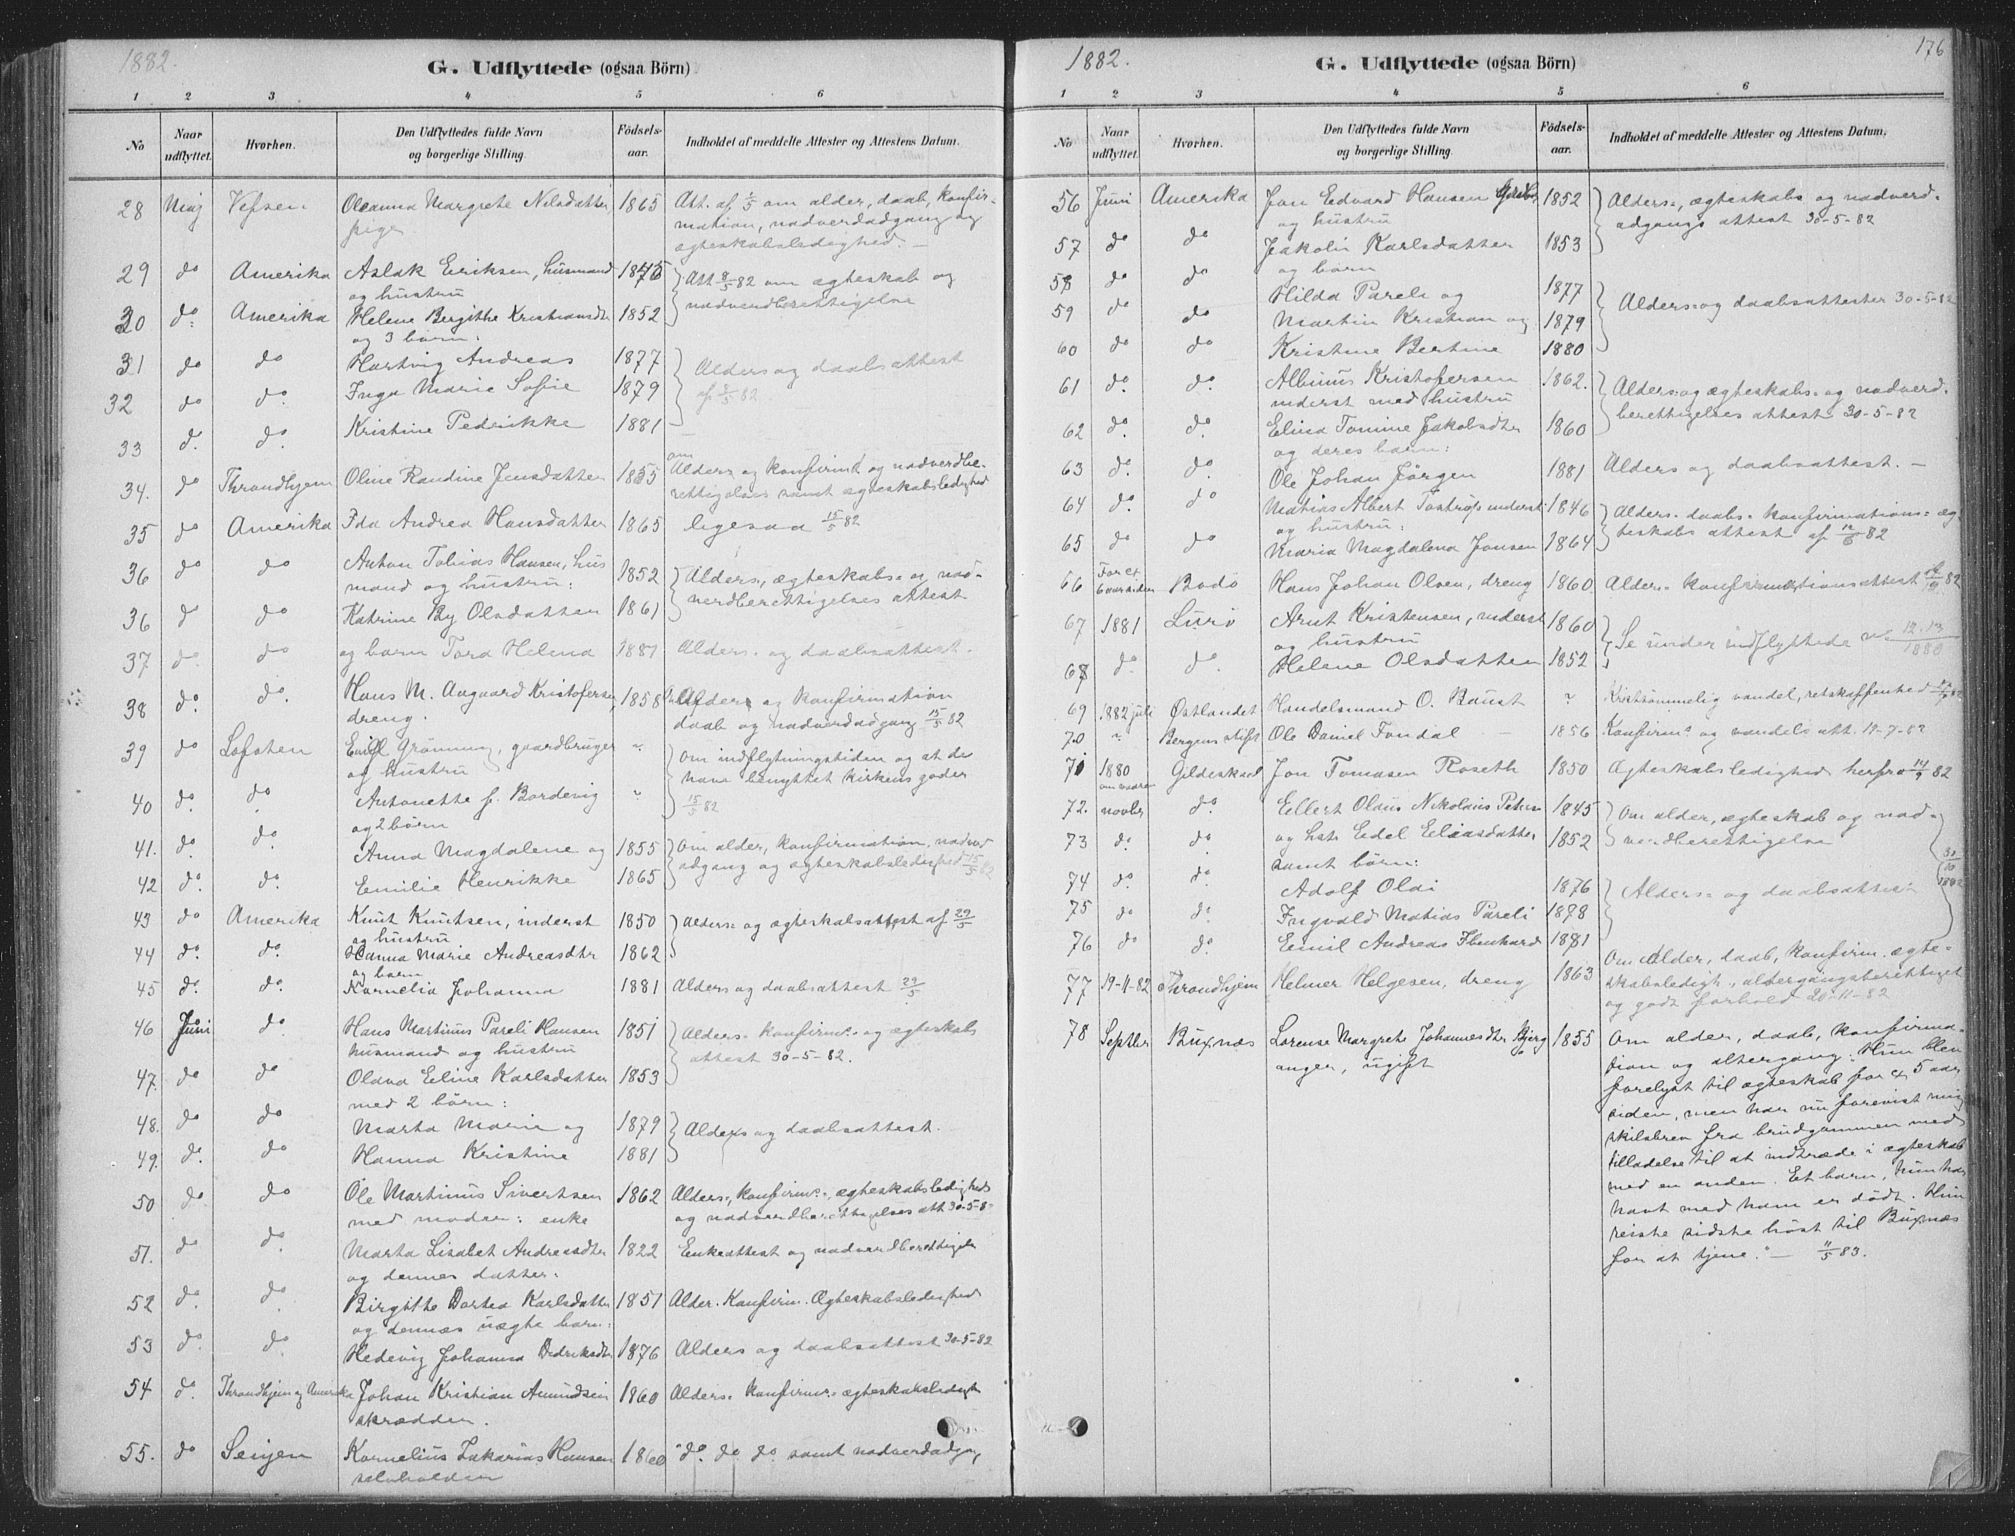 1882.
G. Udflyttede (ogsaa Börn)
1 2 3 4 5 6
No
Naar udflyttet.
Hvorhen.
Den Udflyttedes fulde Navn og borgerlige Stilling.
Födsels-aar.
Indholdet af meddelte Attester og Attestens Datum.
28 Maj Vefsen Oleanna Margrete Nilsdatter 1865 Att. af 1/5 om alder, daab, konfir-
pige mation, nadverdadgang og
ægteskabsledighed. —
29 do Amerika Aslak Eriksen, husmand Att 8/5 82 om ægteskab og
og hustru nadverdberettigelse
30 do Amerika Helene Birgithe Kristiansdtr 1852
og 3 børn:
31 do do Hartvig Andreas 1877 Alders og daabsattest
32 do do. Inga Marie Sofie 1879 af 8/5 82
33 do. do. Kristine Pedrikke 1881
34. do Throndhjem Oline Randine Jensdatter 1855 om Alders og konfirm. og nadverdbe-
rettigelses samt ægteskabsledighed
35 do Amerika Ida Andrea Hansdatter 1865 ligesaa 15/5 82
36 do do Anton Tobias Hansen, hus 1852 Alders-, ægteskabs- og nad-
mand og hustru: verdberettigelses attest
36 do do Katrine By Olsdatter 1861
37 do. do og barn Tora Helena 1881 Alders- og daabsattest.
38 do. do. Hans M. Aagaard Kristofersen 1858 Alders og konfirmation
dreng. daab og nadverdadgang 15/5 82
39 do Lofoten Emil Grønning, gaardbruger " om indflytningstiden og at de
og hustru have benyttet kirkens goder
40 do. do. Antonette f. Bordevig " 15/5 82
og 2 børn
41. do. do. Anna Magdalene og 1855 Om alder, konfirmation, nadverd
42 do. do. Emilie Henrikke 1865 adgang og ægteskabsledighed 15/5 82
43 do Amerika Knut Knutsen, inderst 1850 Alders- og ægteskabsattest af 29/5
og hustru
44 do. do. Hanna Marie Andreasdtr 1862
og barn
45 do. do. Kornelia Johanna 1881 Alders og daabsattest 29/5
46 Juni do. Hans Martinus Pareli Hansen 1851 Alders- konfirm- og ægteskabs
husmand og hustru attest 30-5-82.
47. do do Olava Eline Karlsdatter 1853
med 2 børn:
48. do do Marta Marie og 1879 Alders og daabsattest.
49. do. do Hanna Kristine 1881
50 do. do Ole Martinus Sivertsen 1862 Alders-, konfirm-, ægteskabsledigheds
med moder: enke og nadverdberettigelses att 30-5-8
51. do do. Marta Lisabet Andreasdtr 1822 Enkeattest og nadverdberettigels
og dennes datter:
52 do. do. Birgitte Dortea Karlsdatter 1851 Alder. Konfirm. Ægteskabsledighed
og dennes uægte barn:
53 do. do. Hedevig Johanna Didriksdtr 1876 Alders og daabsattest 30-5-82
54 do. Throndhjem og Amerika Johan Kristian Amundsen 1860 Alders- konfirm- ægteskabsledigh
skrædder.
55. do Senjen Kornelius Zakarias Hansen 1860 do. do do samt nadverdadga
selvholder
1882.
176
G. Udflyttede (ogsaa Börn)
1 2 3 4 5 6
No
Naar udflyttet.
Hvorhen.
Den Udflyttedes fulde Navn og borgerlige Stilling.
Födsels-aar.
Indholdet af meddelte Attester og Attestens Datum.
56 Juni Amerika Jon Edvard Hansen 1852 Alders-, ægteskabs og nadverd-
og hustru adgangs attest 30-5-82
57 do do Jakobi Karlsdatter 1853
og børn
58 do do Hilda Pareli og 1877 Alders- og daabsattester 30-5-82
59 do do Martin Kristian og 1879
60 do do Kristine Bertine 1880
61 do. do. Albinus Kristofersen 1862. Alders og ægteskabs- og nadverd-
inderst med hustru berettigelses attest 30-5-82
62 do. do. Elina Tomine Jakobsdtr 1860
og deres barn:
63 do. do. Ole Johan Jörgen 1881 Alders og daabsattest. —
64 do. do Matias Albert Tostrup inderst 1846 Alders- daabs- konfirmations- æg-
og hustru: teskabs attest af 12/6 82
65 do do Maria Magdalena Jonsen 1864
66 For ca 6 aar siden Bodö Hans Johan Olsen, dreng 1860 Alder- konfirmationsattest 82
67 1881 Lurö Arnt Kristensen, inderst 1860 Se under indflyttede no 12.13/1880
og hustru
68 do do. Helene Olsdatter 1852
69 1882 juli Østlandet Handelsmand O. Baust " Kristsømmelig vandel, retskaffenhed 82
70 " Bergens stift Ole Daniel Fondal — 1856 Konfirm. og vandels att. 19-7-82
71 1880 Gildeskaal Jon Tomasen Roseth 1850 Ægteskabsledighed herfra 14/9 82
72. om vaaren novbr do. Ellert Olaus Nikolaus Peters 1845 Om alder, ægteskab og nad-
73 do. do. og hst. Edel Eliasdatter 1852 verdberettigelse
samt børn: 31/10 1882
74 do. do. Adolf Olai 1876 Alders- og daabsattest
75 do do. Ingvald Matias Pareli 1878
76 do do. Emil Andreas Ebenhard 1881
77 19-11-82 Throndhjem Helmer Helgesen, dreng 1863 Om alder, daab, konfirm. ægte-
skabsledigh., altergangsberettiget
og godt forhold 20-11-82
78 Septbr Buxnæs Lorense Margrete Johannesdtr Bjerg 1855 Om alder, daab, konfirma-
anger, ugift tion og altergang. "Hun blev
forelyst til ægteskab for 4, 5 aar
siden, men har nu forevist mig
skilsbrev fra brudgommen med
tilladelse til at indtræde i ægteskab
med en anden. Et barn, hun har
havt med ham er dödt. Hun
reiste sidste höst til Buxnæs
for at tjene." — 11/5 83.